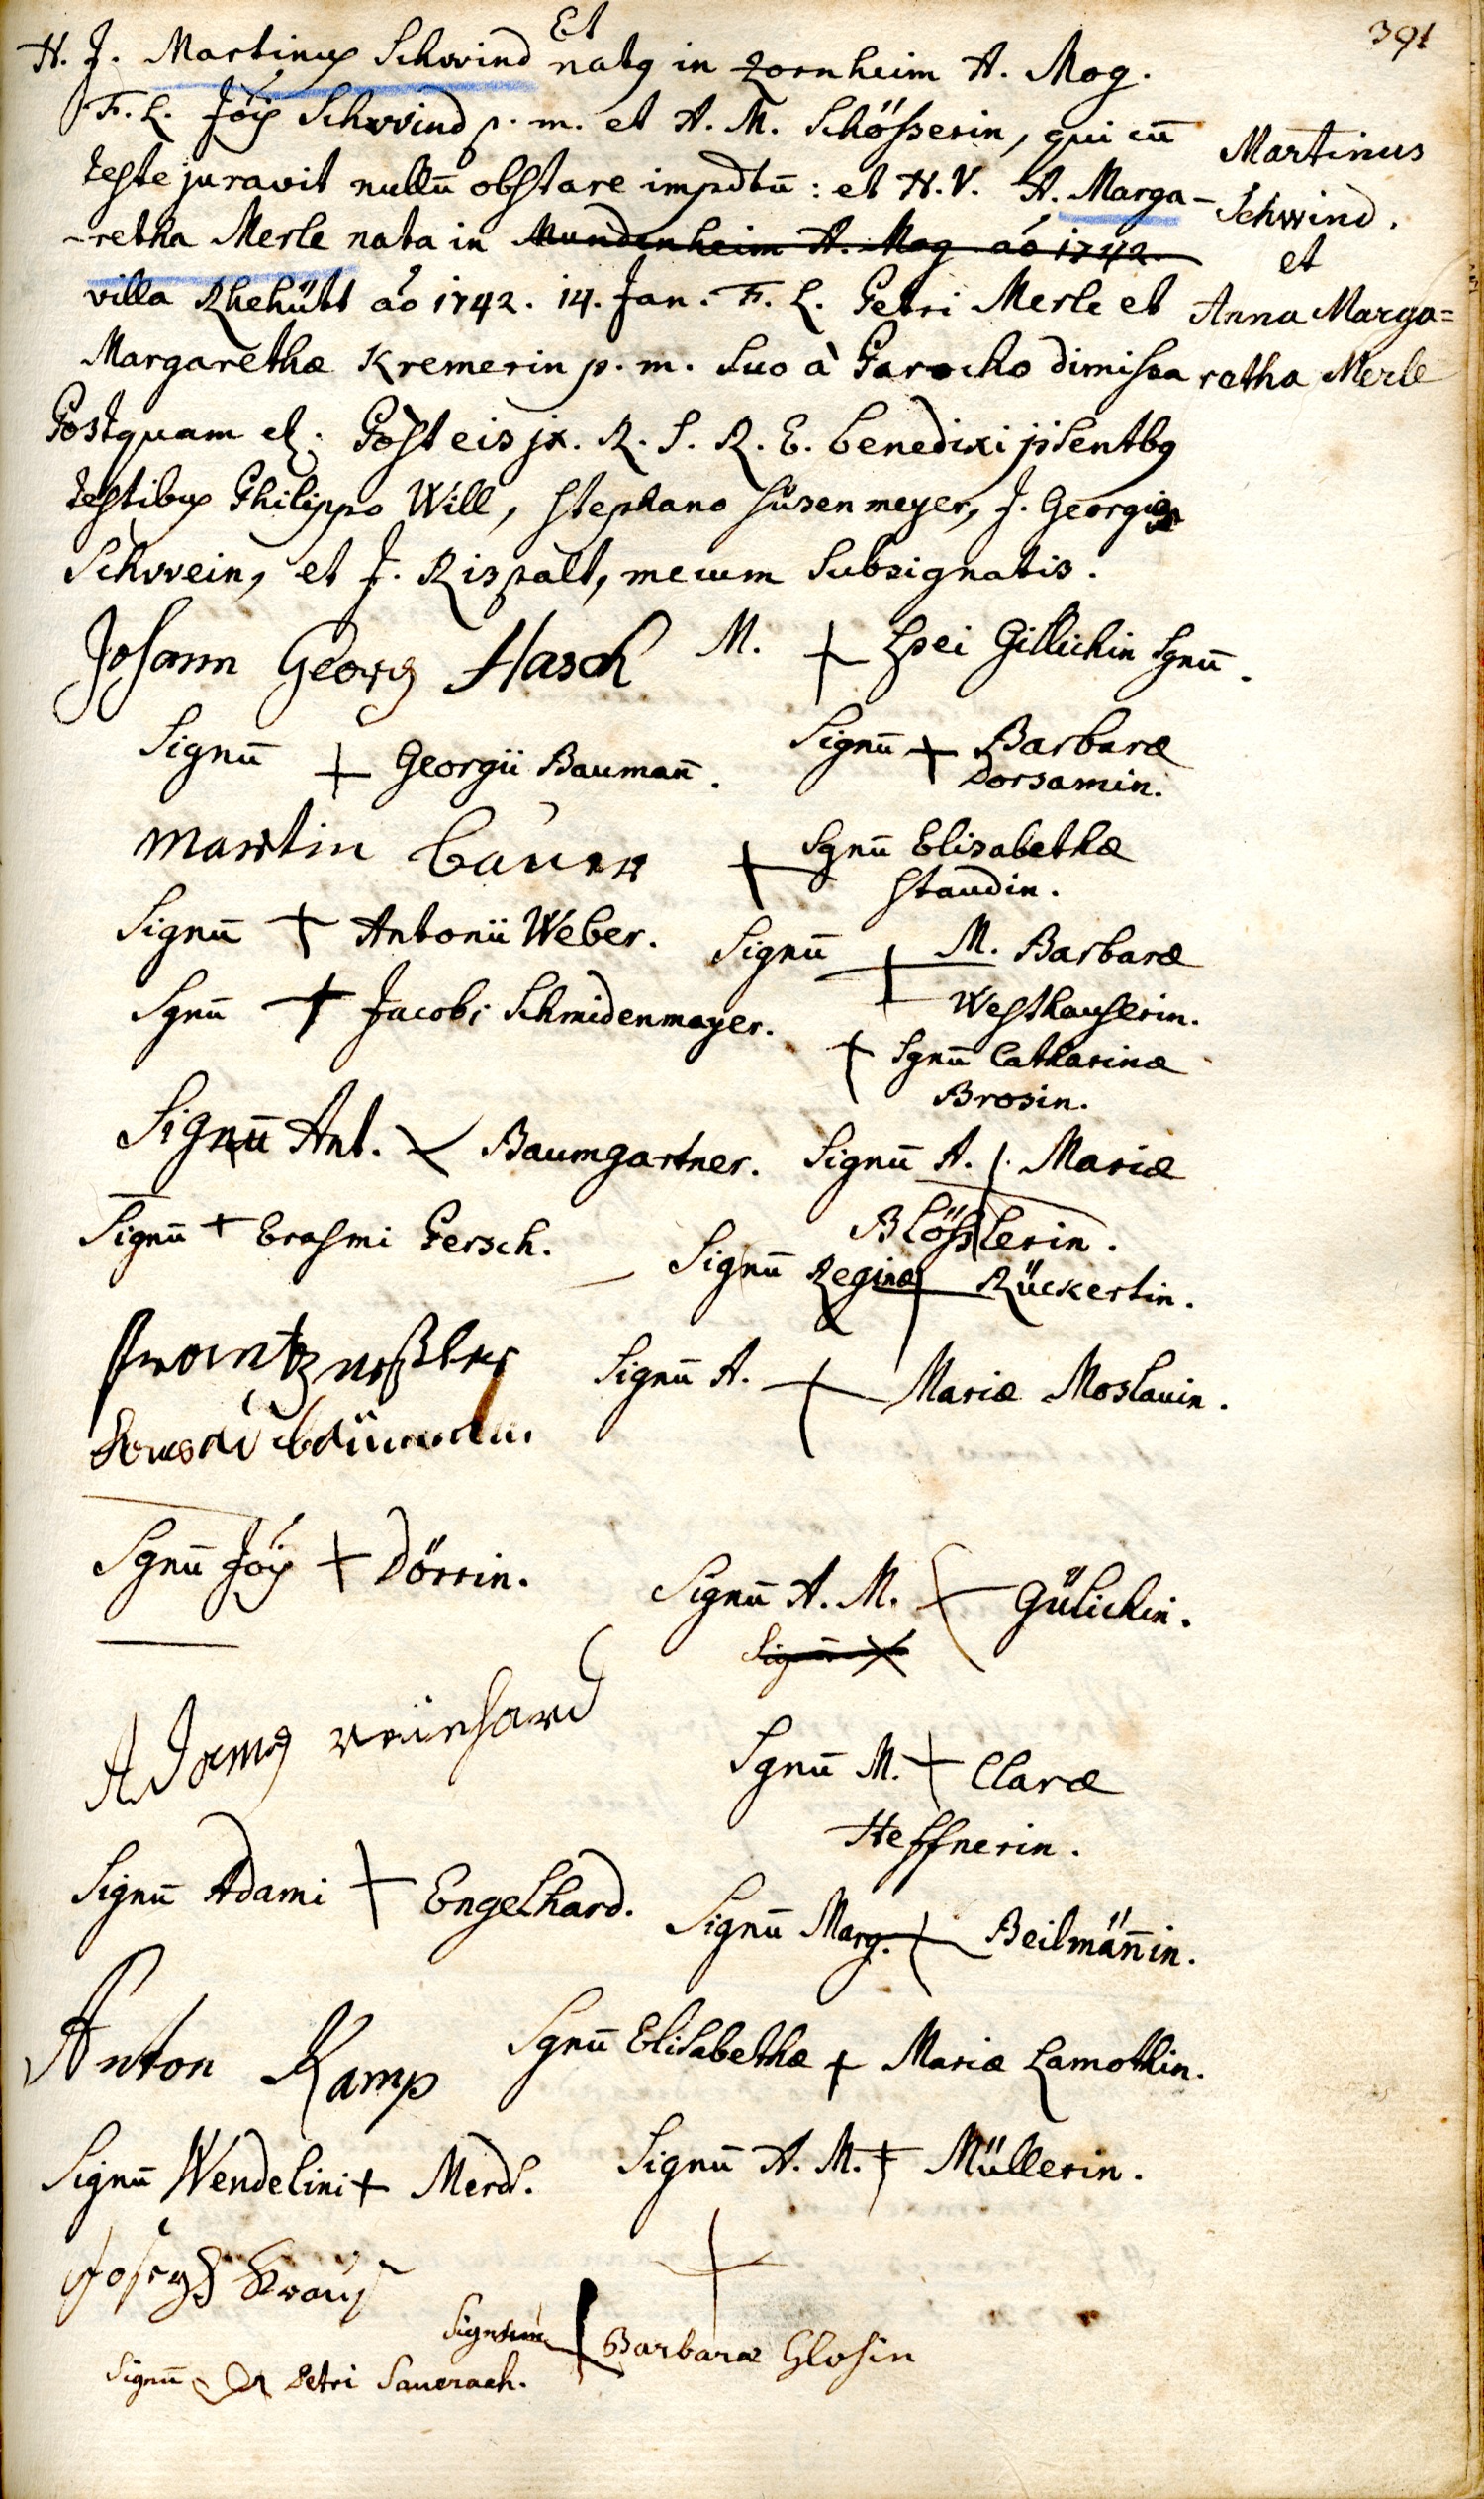 391
Et
H. J. Martinus Schwind natq in Zornheim A. Mog.
F. L. Jois Schwind p. m. et A. M. Schösserin, qui cū
teste juravit nullū obstare impdtū: et H. V. A. Marga-
-retha Merle nata in Mundenheim A. Mog aō 1742.
villa Rhehütt aō 1742. 14. Jan. F. L. Petri Merle et
Margarethæ Kremerin p. m. suo à Parocho dimissa
Martinus
Schwind.
et
Anna Marga=
retha Merle
Postquam et. Post eis jx. R. S. R. E. benedixi p̄sentbq
testibus Philippo Will, Stephano Süsenmeyer, J. Georgio
Schwein, et J. Rispalt, mecum subsignatis.
Johann Georg Hasch M. + Evei Gillichin Sgnū.
Signū + Georgii Baumañ.
Signū + Barbaræ
Dorsamin.
Martin Bauer
+ Sgnū Elisabethæ
Staudin.
Signū + Antonii Weber.
Signū + M. Barbaræ
Westhauserin.
Sgnū + Jacobi Schmidenmayer.
+ Sgnū Catharinæ
Brosin.
Signū Ant. + Baumgartner.
Signū A. + Mariæ
Blösslerin.
Signū + Erasmi Persch.
Signū Reginæ + Rückertin.
Frantz
Signū A. + Mariæ Moslauin.
Sgnū Jois + Dörrin.
Signū A. M. + Gülichin.
Signū +
Adamq reinhard
Sgnū M. + Claræ
Heffnerin.
Signū Adami + Engelhard.
Signū Marg. + Beilmäñin.
Anton Kamp
Sgnū Elisabethæ + Mariæ Lamothin.
Signū Wendelini + Merdl.
Signū A. M. + Müllerin.
Joseph Krauß
+
Signum + Barbaræ Glosin
Signū Petri Sauerach.